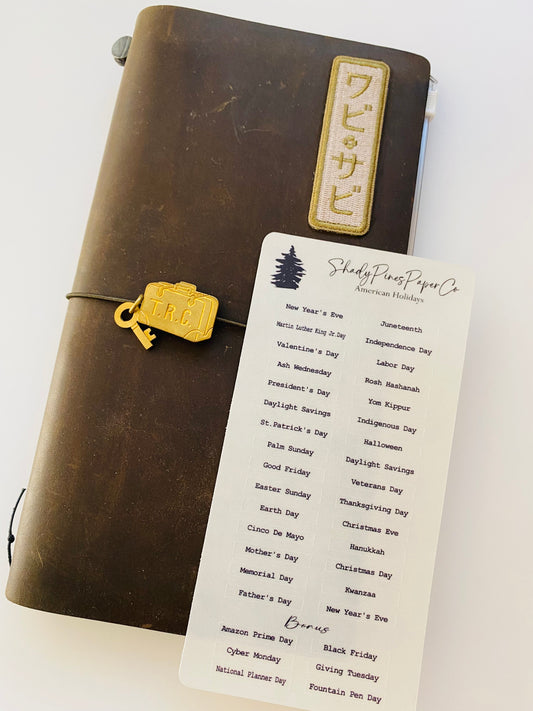 ワビ・サビ
T.R.C.
ShadyPinesPaperCo
American Holidays
New Year's Eve
Martin Luther King Jr.Day
Valentine's Day
Ash Wednesday
President's Day
Daylight Savings
St.Patrick's Day
Palm Sunday
Good Friday
Easter Sunday
Earth Day
Cinco De Mayo
Mother's Day
Memorial Day
Father's Day
Juneteenth
Independence Day
Labor Day
Rosh Hashanah
Yom Kippur
Indigenous Day
Halloween
Daylight Savings
Veterans Day
Thanksgiving Day
Christmas Eve
Hanukkah
Christmas Day
Kwanzaa
New Year's Eve
Bonus
Amazon Prime Day
Cyber Monday
National Planner Day
Black Friday
Giving Tuesday
Fountain Pen Day